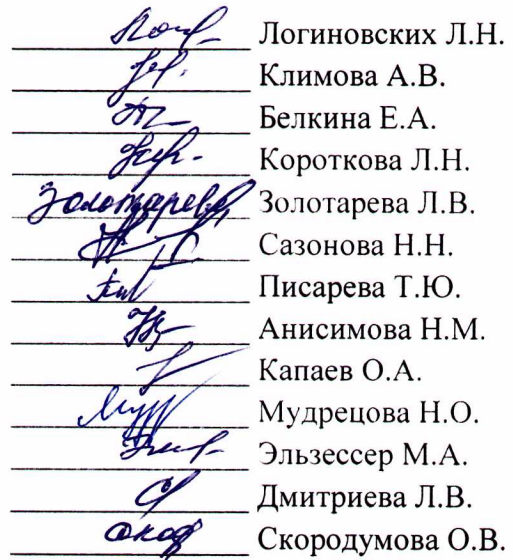 Логиновских Л.Н.
Климова А.В.
Белкина Е.А.
Короткова Л.Н.
Золотарева Золотарева Л.В.
Сазонова Н.Н.
Писарева Т.Ю.
Анисимова Н.М.
Капаев О.А.
Мудрецова Н.О.
Эльзессер М.А.
Дмитриева Л.В.
Скородумова О.В.